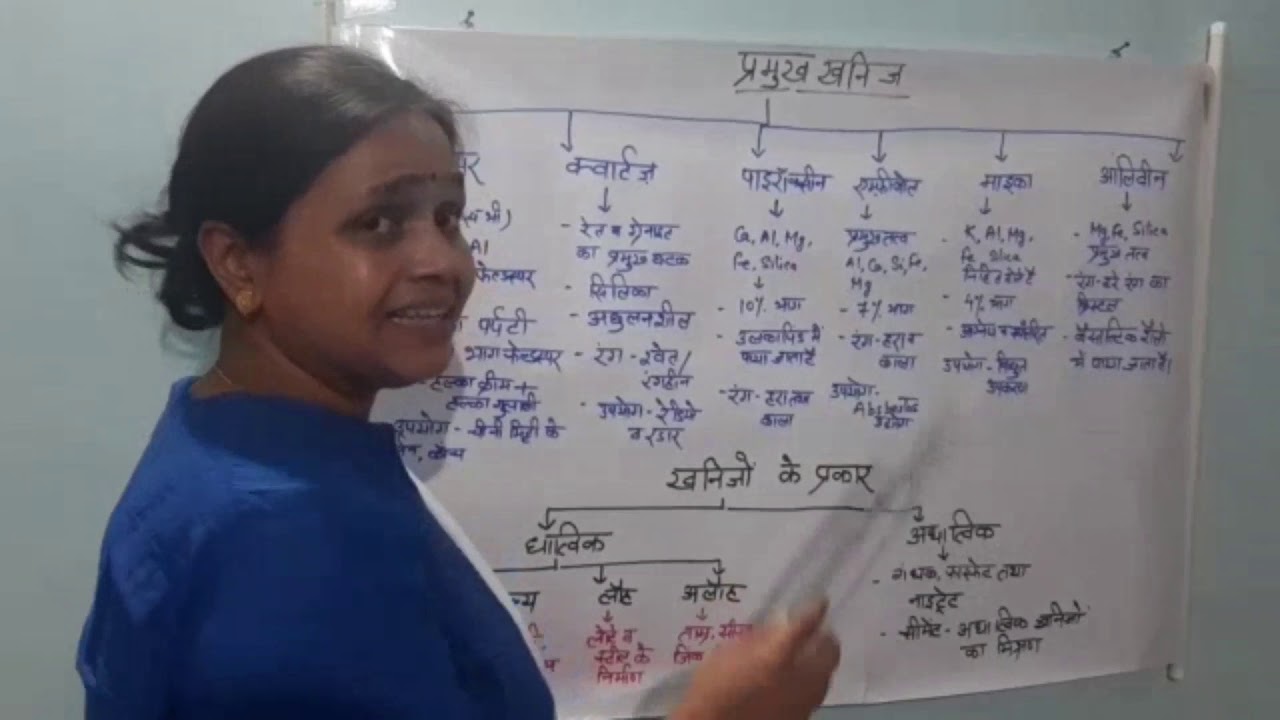 प्रमुख खनिज
क्वार्टज़
- रेत व ग्रेनाइट
का प्रमुख घटक
- सिलिका
- अघुलनशील
- रंग - श्वेत/
रंगहीन
- उपयोग - रेडियो
व रडार
पाइरॉक्सीन
Ca, Al, Mg,
Fe, Silica
- 10% भाग
- उल्कापिंड में
पाया जाता है
- रंग - हरा
काला
एम्फीबोल
प्रमुख तत्व
Al, Ca, Si, Fe,
Mg
- 7% भाग
- रंग - हरा व
काला
उपयोग -
उद्योग
माइका
- K, Al, Mg,
Fe, Silica
- 4% भाग
उपयोग - विद्युत
उपकरण
ऑलिवीन
- Mg, Fe, Silica
प्रमुख तत्व
- रंग - हरे रंग का
क्रिस्टल
में पाया जाता है।
Al
पर्पटी
हल्का क्रीम +
हल्का गुलाबी
उपयोग - चीनी मिट्टी के
खनिजों के प्रकार
धात्विक
लौह
लोहे व
स्टील के
निर्माण
अलौह
अधात्विक
- गंधक, फास्फेट तथा
नाइट्रेट
- सीमेंट - अधात्विक खनिजों
का मिश्रण